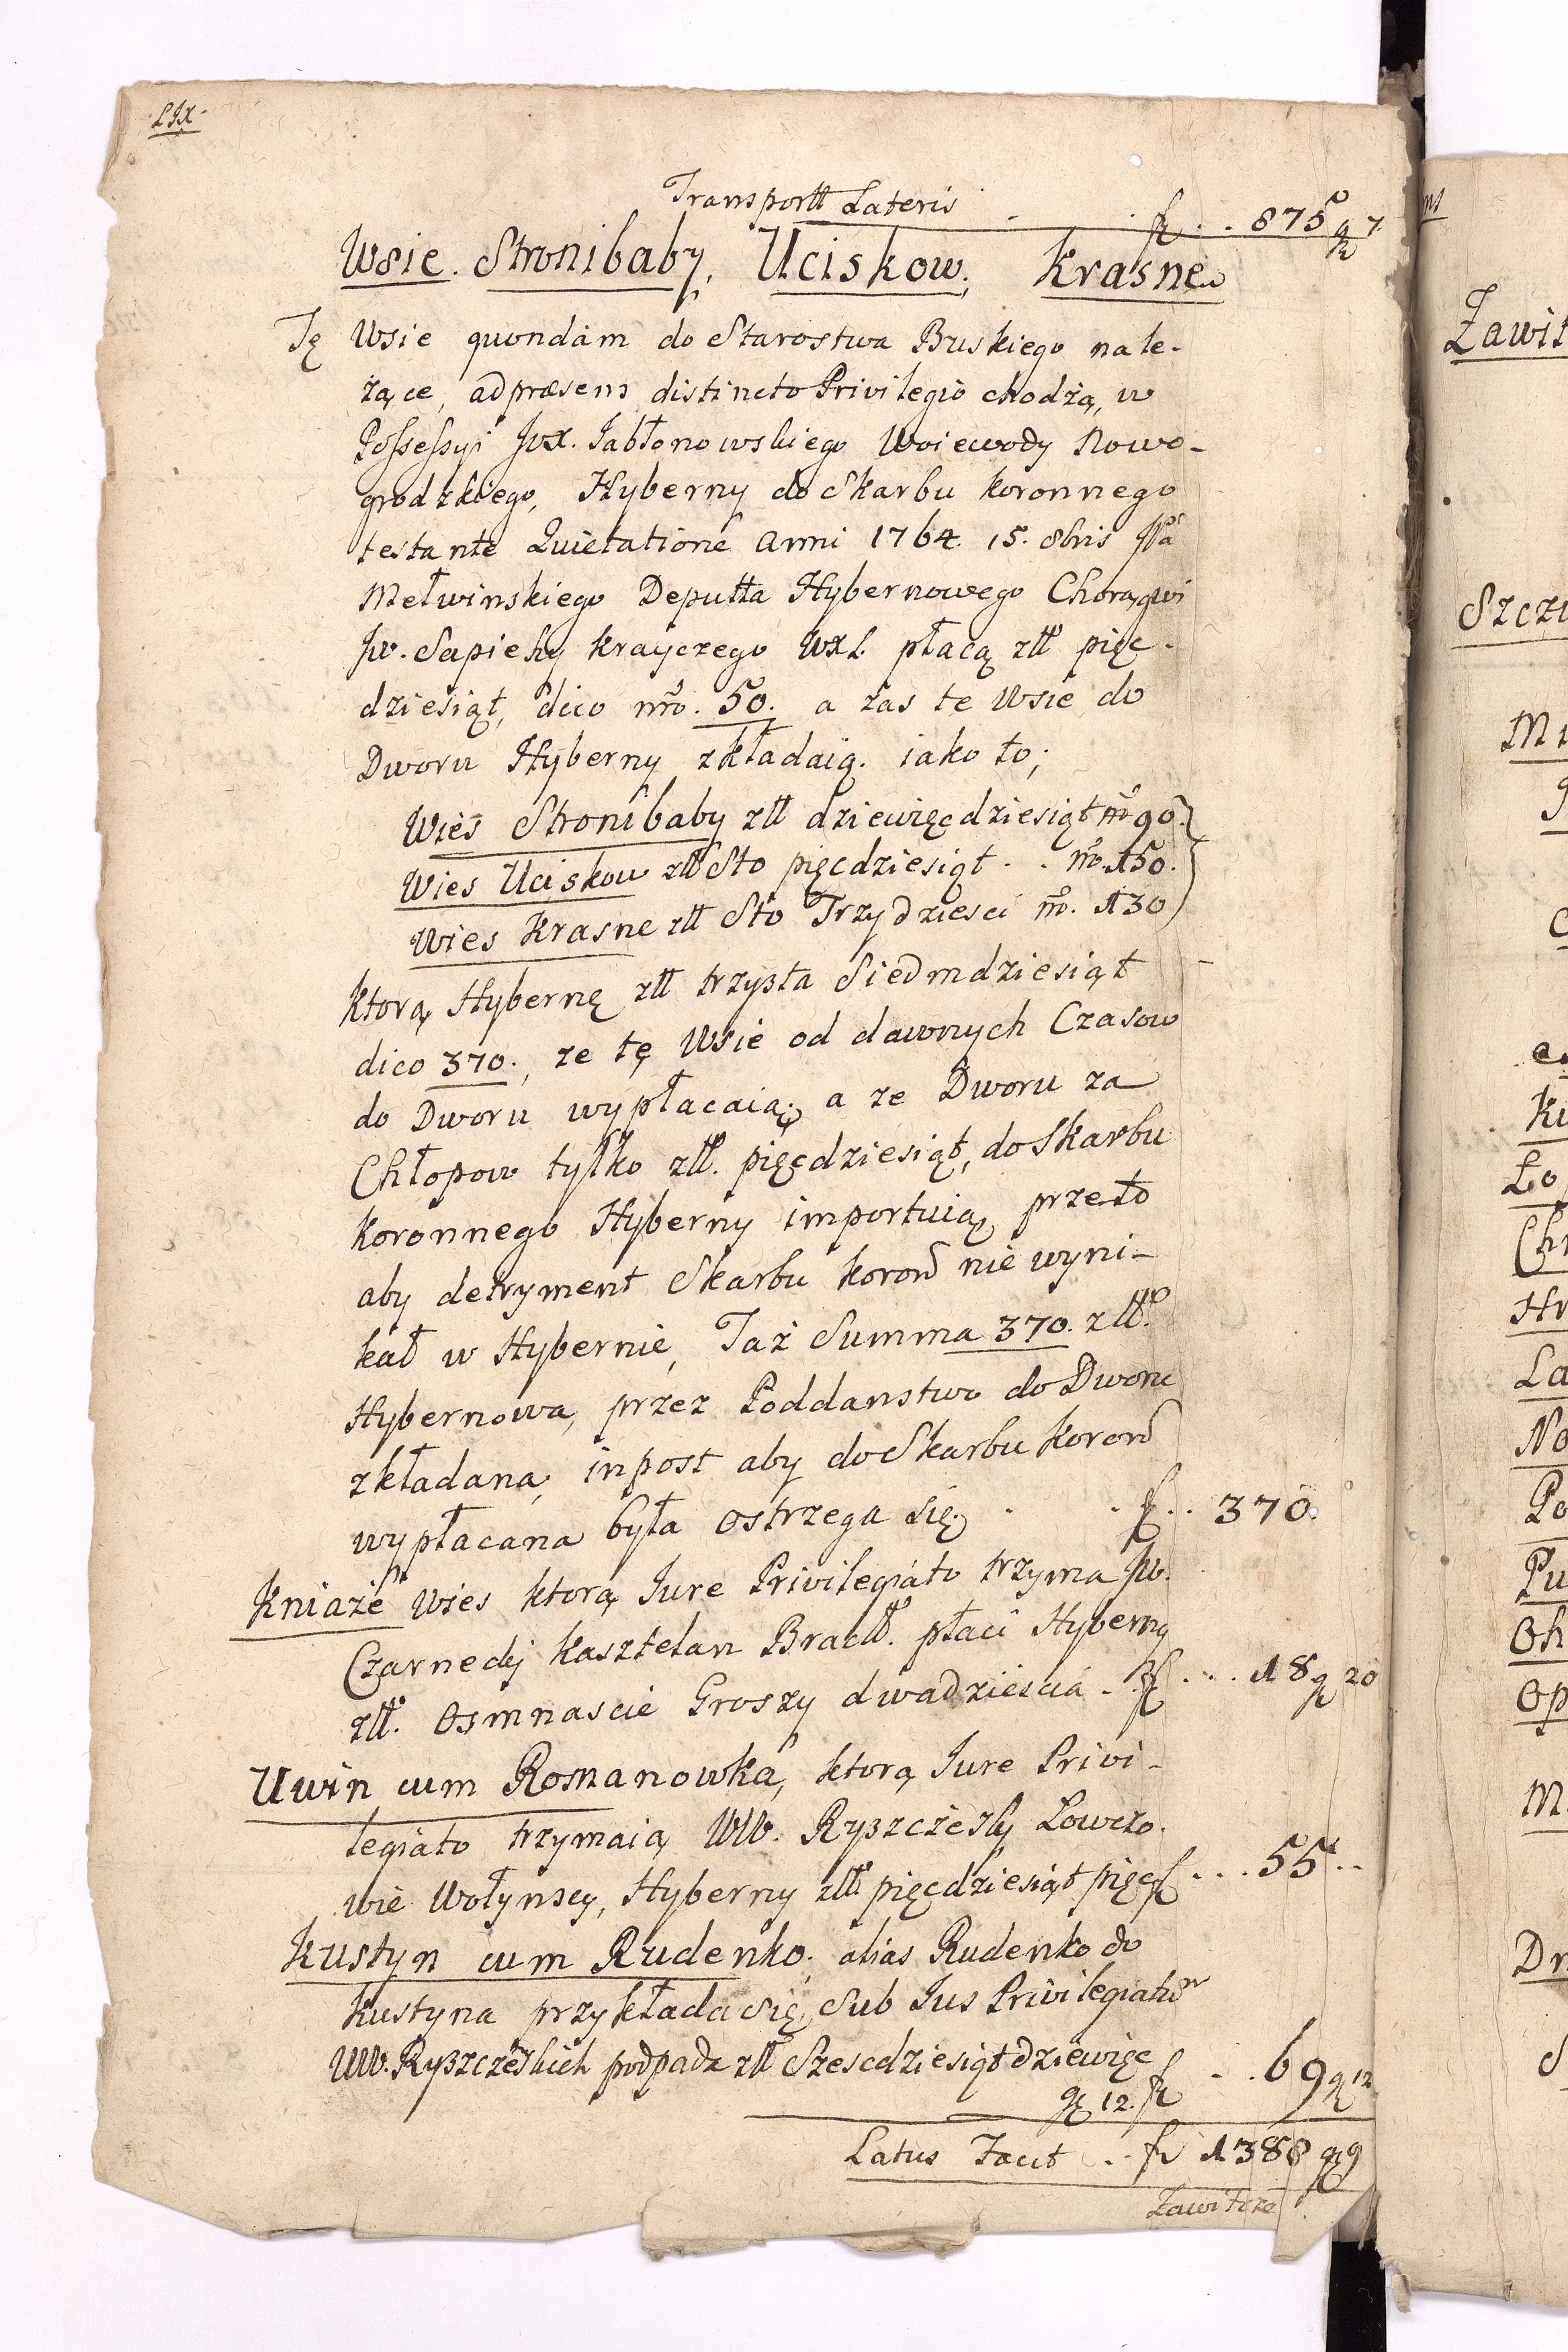 LIX
Transportt Lateris . . f . . 875 g 7.
Wsie. Stronibaby, Uciskow, Krasne
Tę Wsie quondam do Starostwa Buskiego nale-
żące, ad præsens distincto Privilegio chodzą, w
Possessyi JWX. Jabłonowskiego Woiewody Nowo-
grodzkiego, Hyberny do Skarbu Koronnego
testante Quietatione Anni 1764. 15. 8bris JPa
Mełwinskiego Deputta Hybernowego Chorągwi
JW. Sapiehy Krayczego WXL. płacą złł pięć-
dziesiąt, dico nro. 50. a zas te Wsie do
Dworu Hyberny zkładaią. iako to;
Wies Stronibaby złł dziewięcdziesiąt nro 90.
Wies Uciskow złł Sto pięcdziesiąt . . nro. 150.
Wies Krasne złł Sto Trzydziesci nro. 130
Ktorą Hybernę złł trzysta Siedmdziesiąt
dico 370., ze tę Wsie od dawnych Czasow
do Dworu wypłacaią; a ze Dworu za
Chłopow tylko złł. pięcdziesiąt, do Skarbu
Koronnego Hyberny importuią, przeto
aby detryment Skarbu Koron nie wyni-
kał w Hybernie, Taż Summa 370. złł.
Hybernowa, przez Poddanstwo do Dworu
zkładana, inpost aby do Skarbu Koron
wypłacana była ostrzega się. . . f . . 370.
Kniaże Wies ktorą Jure Privilegiato trzyma JW.
Czarnecky Kasztelan Bracłł. płaci Hyberny
złł. Osmnascie Groszy dwadziescia . f . . . 18 g 20
Uwin cum Romanowka, ktorą Jure Privi-
legiato trzymaią WW. Ryszczescy Lowczo-
wie Wołynscy, Hyberny złł pięcdziesiąt pięc f . . . 55 . .
Kustyn cum Rudenko; alias Rudenko do
Kustyna przykłada się, Sub Jus Privilegiatum
WW. Ryszczeskich podpada złł Szescdziesiąt dziewięc
g 12. f . . 69 g 12
Latus Facit . . f 1388 g 9
Zawitcze
ns
Zawit
Szczu
Ku
Lo
Ch
Hr
La
No
Po
Pu
Oh
Op
M
Dr